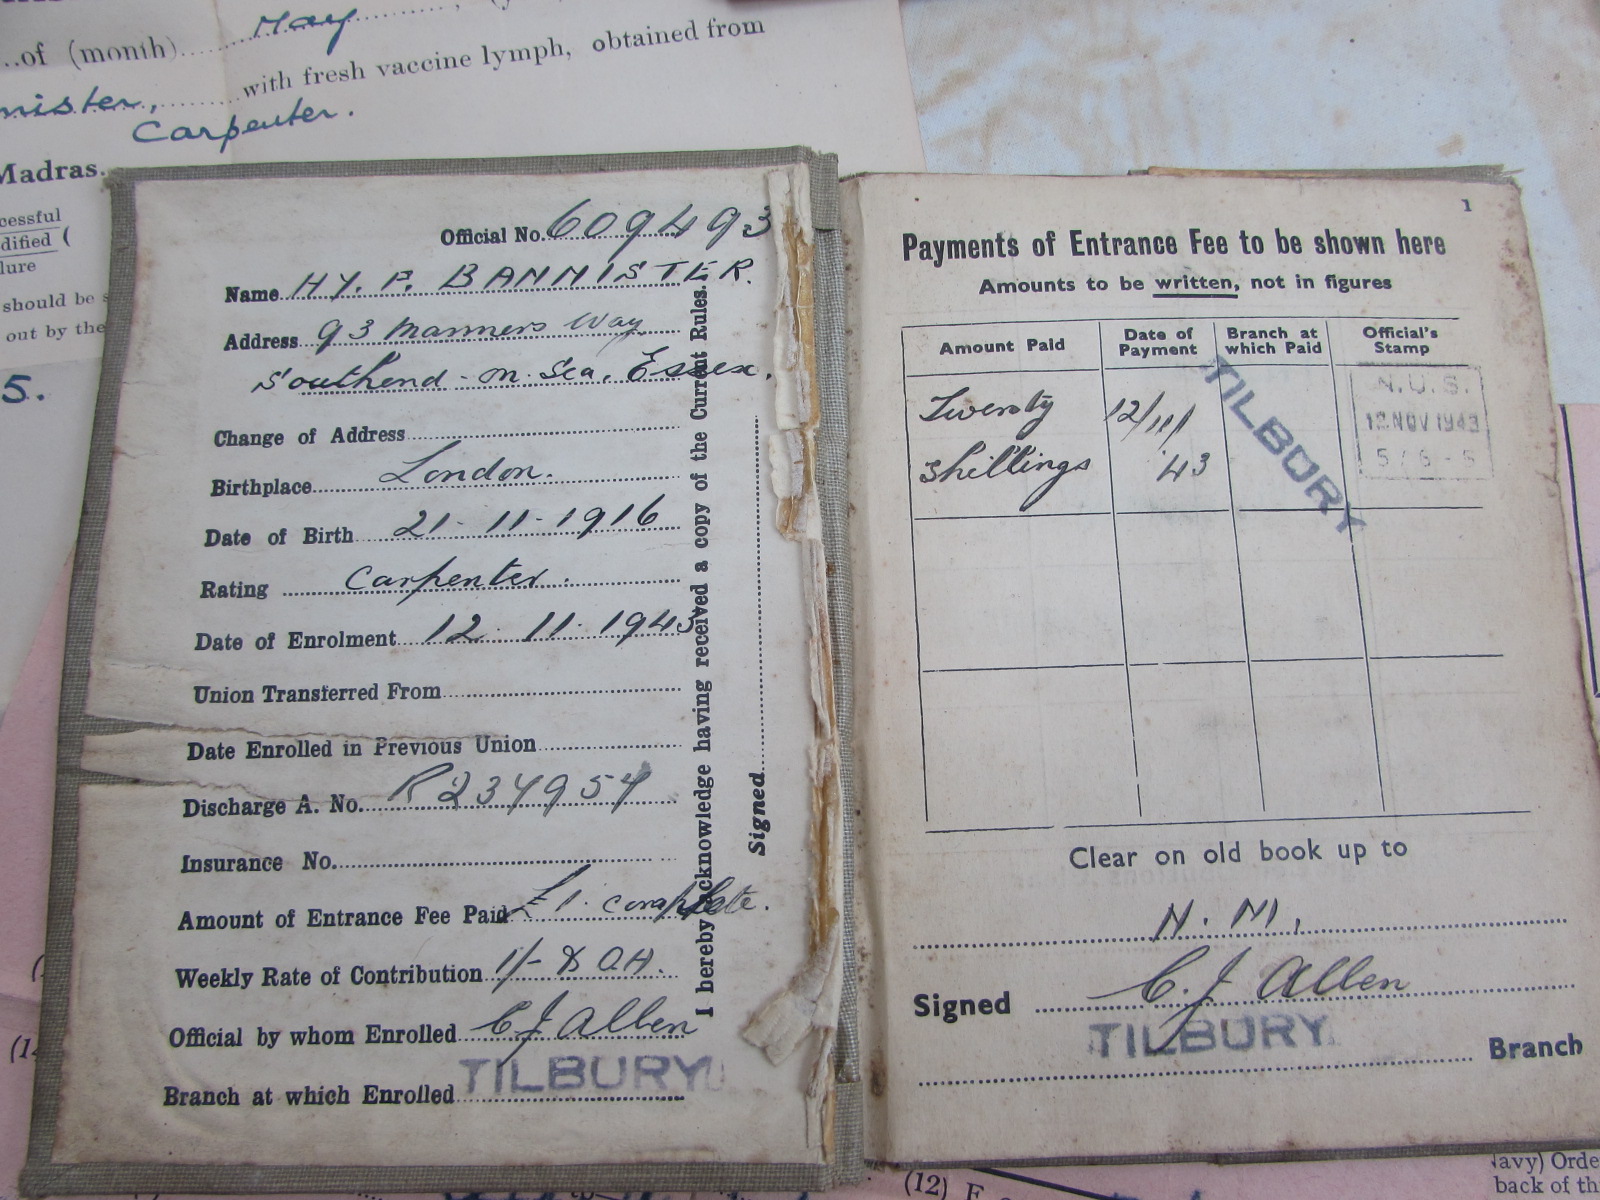 ..of (month) May
with fresh vaccine lymph, obtained from
nister,
Carpenter.
Madras.
cessful
dified (
lure
should be s
out by the
5.
Official No. 609493
Name HY. P. BANNISTER.
Address 93 Manners Way
Southend-on-Sea, Essex.
Change of Address
Birthplace London.
Date of Birth 21-11-1916
Rating Carpenter.
Date of Enrolment 12 11 1943
Union Transferred From
Date Enrolled in Previous Union
Discharge A. No. R234954
Insurance No.
Amount of Entrance Fee Paid £1. complete.
Weekly Rate of Contribution 1/- & O.H.
Official by whom Enrolled C J Allen
Branch at which Enrolled TILBURY
I hereby acknowledge having received a copy of the Current Rules.
Signed
1
Payments of Entrance Fee to be shown here
Amounts to be written, not in figures
Amount Paid Date of Payment Branch at which Paid Official's Stamp
Twenty 12/11/ TILBURY N.U.S.
12 NOV 1943
Shillings 43 5/6-5
Clear on old book up to
N. M.
Signed C. J Allen
TILBURY Branch
(12) F
Navy) Orde
back of th